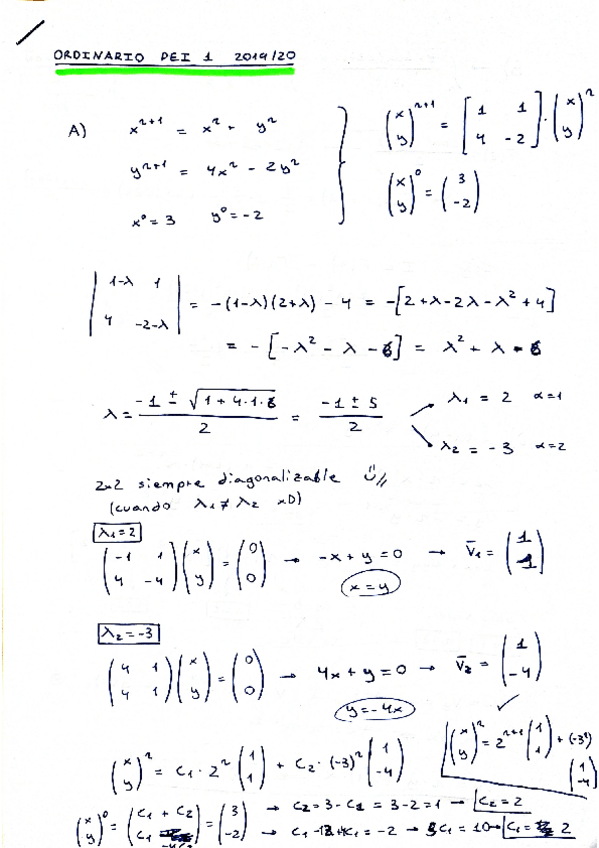 ORDINARIO DEI 1 2019/20
A) x^{n+1} = x^n + y^n
y^{n+1} = 4x^n - 2y^n
x^0 = 3 y^0 = -2
(x y)^{n+1} = [1 1 4 -2] · (x y)^n
(x y)^0 = (3 -2)
|1-λ 1 4 -2-λ| = -(1-λ)(2+λ) - 4 = -[2+λ-2λ-λ²+4]
= -[-λ² - λ - 6] = λ² + λ - 6
λ = (-1 ± √(1+4·1·6))/2 = (-1 ± 5)/2
λ₁ = 2 α=1
λ₂ = -3 α=2
2x2 siempre diagonalizable
(cuando λ₁ ≠ λ₂ xD)
λ₁=2
(-1 1 4 -4)(x y) = (0 0) → -x + y = 0 → V̄₁ = (1 1)
x=y
λ₂=-3
(4 1 4 1)(x y) = (0 0) → 4x + y = 0 → V̄₂ = (1 -4)
y=-4x
(x y)^n = 2^{n+1} (1 1) + (-3)^n (1 -4)
(x y)^n = C₁ · 2^n (1 1) + C₂ · (-3)^n (1 -4)
(x y)^0 = (C₁ + C₂ C₁ -4C₂) = (3 -2) → C₂ = 3 - C₁ = 3 - 2 = 1 → C₂ = 2
→ C₁ - 12 + 4C₁ = -2 → 5C₁ = 10 → C₁ = 2